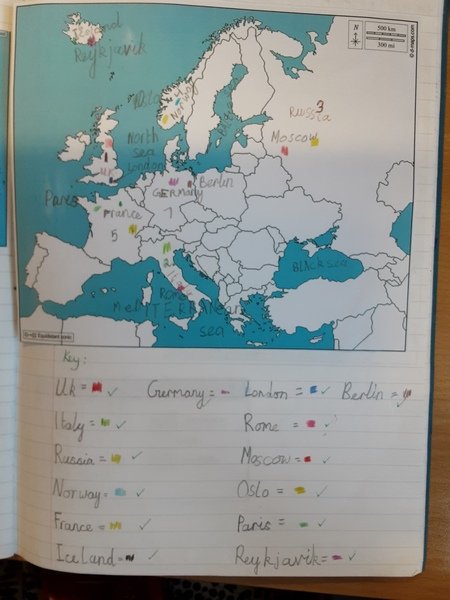 Iceland
Reykjavik
N
500 km
300 mi
© d-maps.com
Oslo
Norway
Russia
3
Moscow
North
sea
London
UK
Berlin
GERMANY
7
Paris
France
5
Italy
Rome
BLACK sea
MediTERRANean
sea
Key:
Uk = ✓ Germany = London = ✓ Berlin = ✓
Italy = ✓ Rome = ✓
Russia = ✓ Moscow = ✓
Norway = ✓ Oslo = ✓
France = ✓ Paris = ✓
Iceland = ✓ Reykjavik = ✓